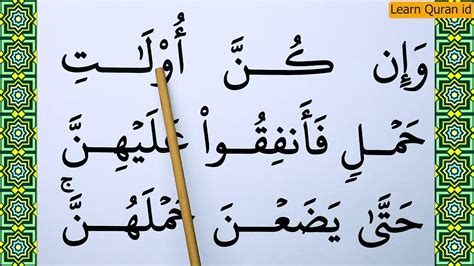 Learn Quran id
وَإِن كُنَّ أُوْلَـٰتِ
حَمْلٍ فَأَنفِقُوا۟ عَلَيْهِنَّ
حَتَّىٰ يَضَعْنَ حَمْلَهُنَّ ۚ